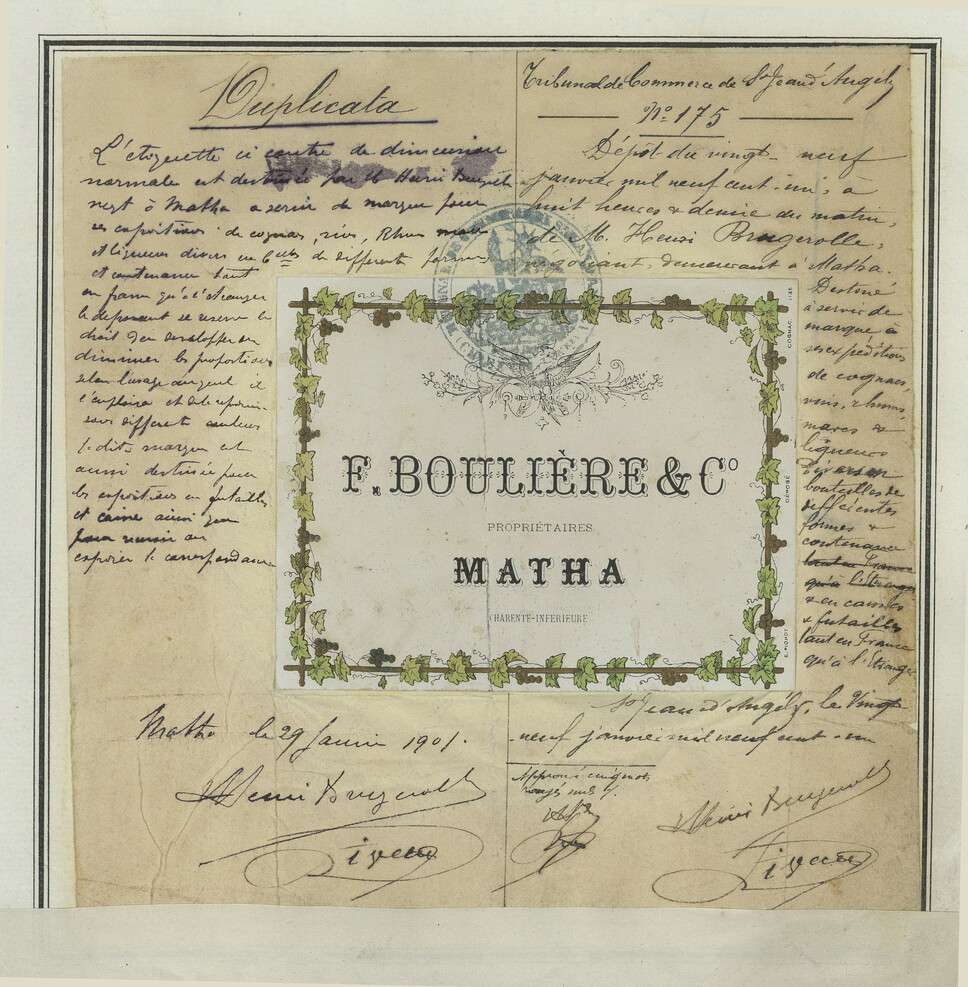 Duplicata
L'étiquette ci contre de dimension
normale est destinée par M Henri Bruge
negt à Matha a servir de marque pour
ses expéditions de cognac, vins, Rhum marc
et liqueurs divers en de différentes formes
et contenance tant
en france qu'à l'étranger
le déposant se réserve le
droit d'en développer ou
diminuer les proportions
selon l'usage auquel il
l'emploiera et de la reproduire
sous différentes couleurs
la dite marque est
aussi destinée pour
les expéditions en futailles
et caisse ainsi que
Matha le 29 Janvier 1901.
Henri Brugerolle
Tribunal de Commerce de St Jean d'Angély
No 175
Dépôt du vingt-neuf
janvier mil neuf cent-un, à
huit heures & demie du matin,
de M. Henri Brugerolle,
négociant, demeurant à Matha.
Destiné
à servir de
marque à
ses expéditions
de cognacs,
vins, rhums,
marcs &
liqueurs
divers en
bouteilles de
différentes
formes &
contenance
tant en France
qu'à l'étranger
& en caisses
& futailles
tant en France
qu'à l'étranger
St Jean d'Angély, le Vingt
-neuf janvier mil neuf cent-un
Henri Brugerolle
F. BOULIÈRE & Co
PROPRIÉTAIRES
MATHA
CHARENTE-INFERIEURE
COGNAC
DÉPOSÉ